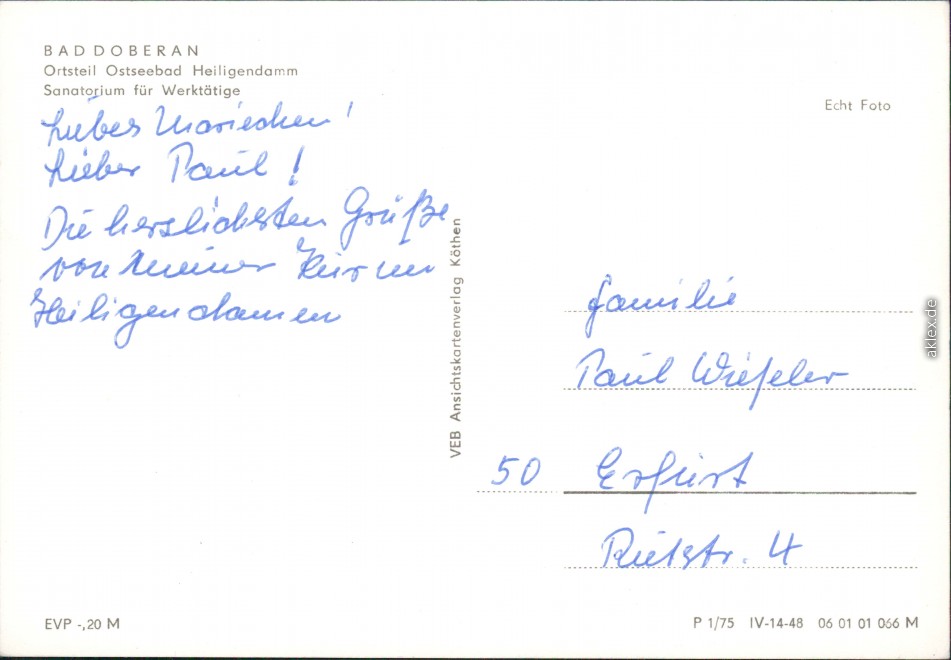 BAD DOBERAN
Ortsteil Ostseebad Heiligendamm
Sanatorium für Werktätige
Liebes Mariechen!
Lieber Paul!
Die herzlichsten Grüße
von meiner Kur in
Heiligendamm
VEB Ansichtskartenverlag Köthen
Echt Foto
Familie
Paul Wiefeler
50 Erfurt
4
EVP -,20 M
P 1/75 IV-14-48 06 01 01 066 M
aklex.de